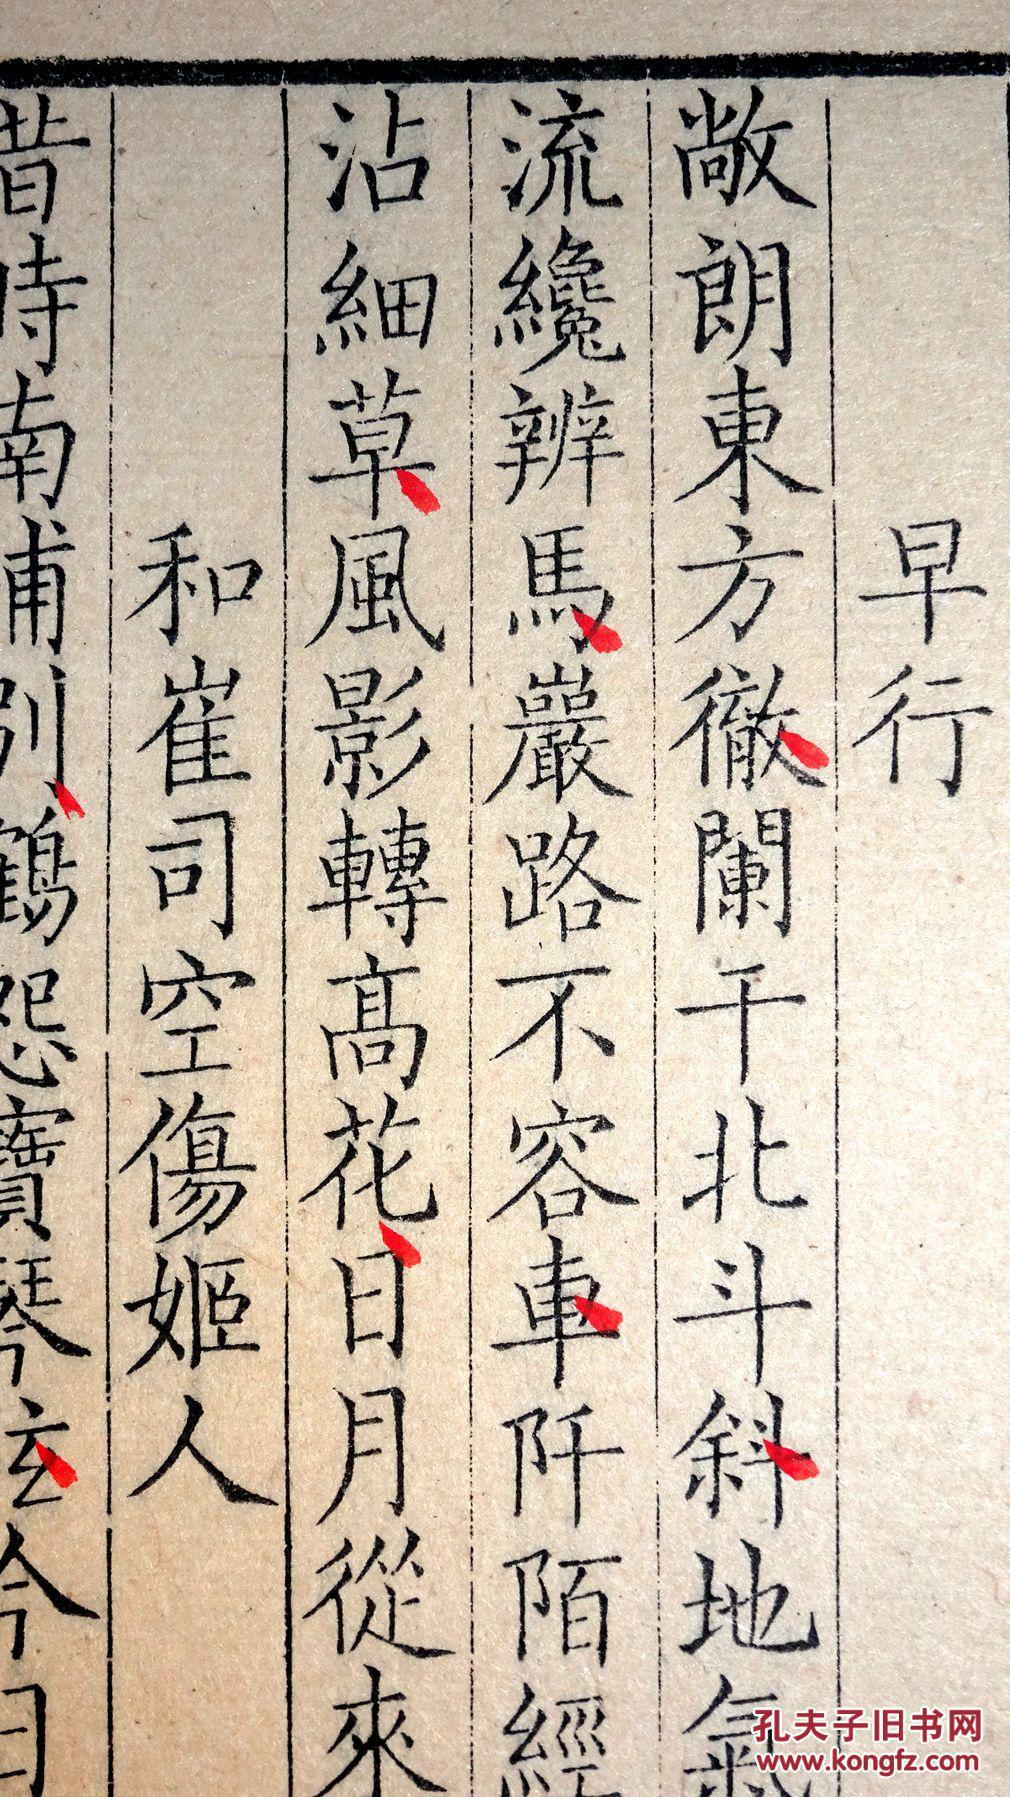 早行
敞朗東方徹闌干北斗斜地氣
流纔辨馬巖路不容車阡陌經
沾細草風影轉高花日月從來
和崔司空傷姬人
昔時南浦別鶴怨寶琴玄今日
孔夫子旧书网
www.kongfz.com